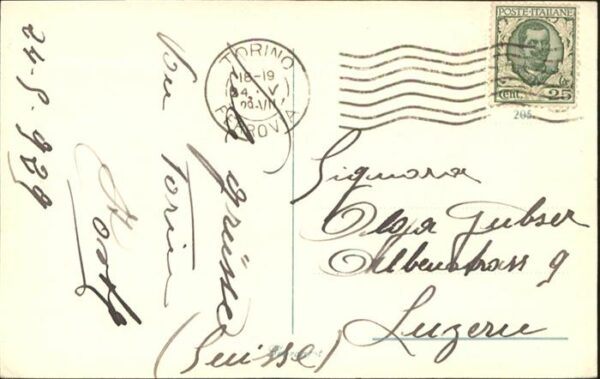 POSTE ITALIANE
Cent. 25
205
TORINO
18-19
24 · V
29·VII
FERROVIA
24-5-929
grüsse
Signora
Olga Gubser
Albenstrass 9
Luzern
(Suisse)